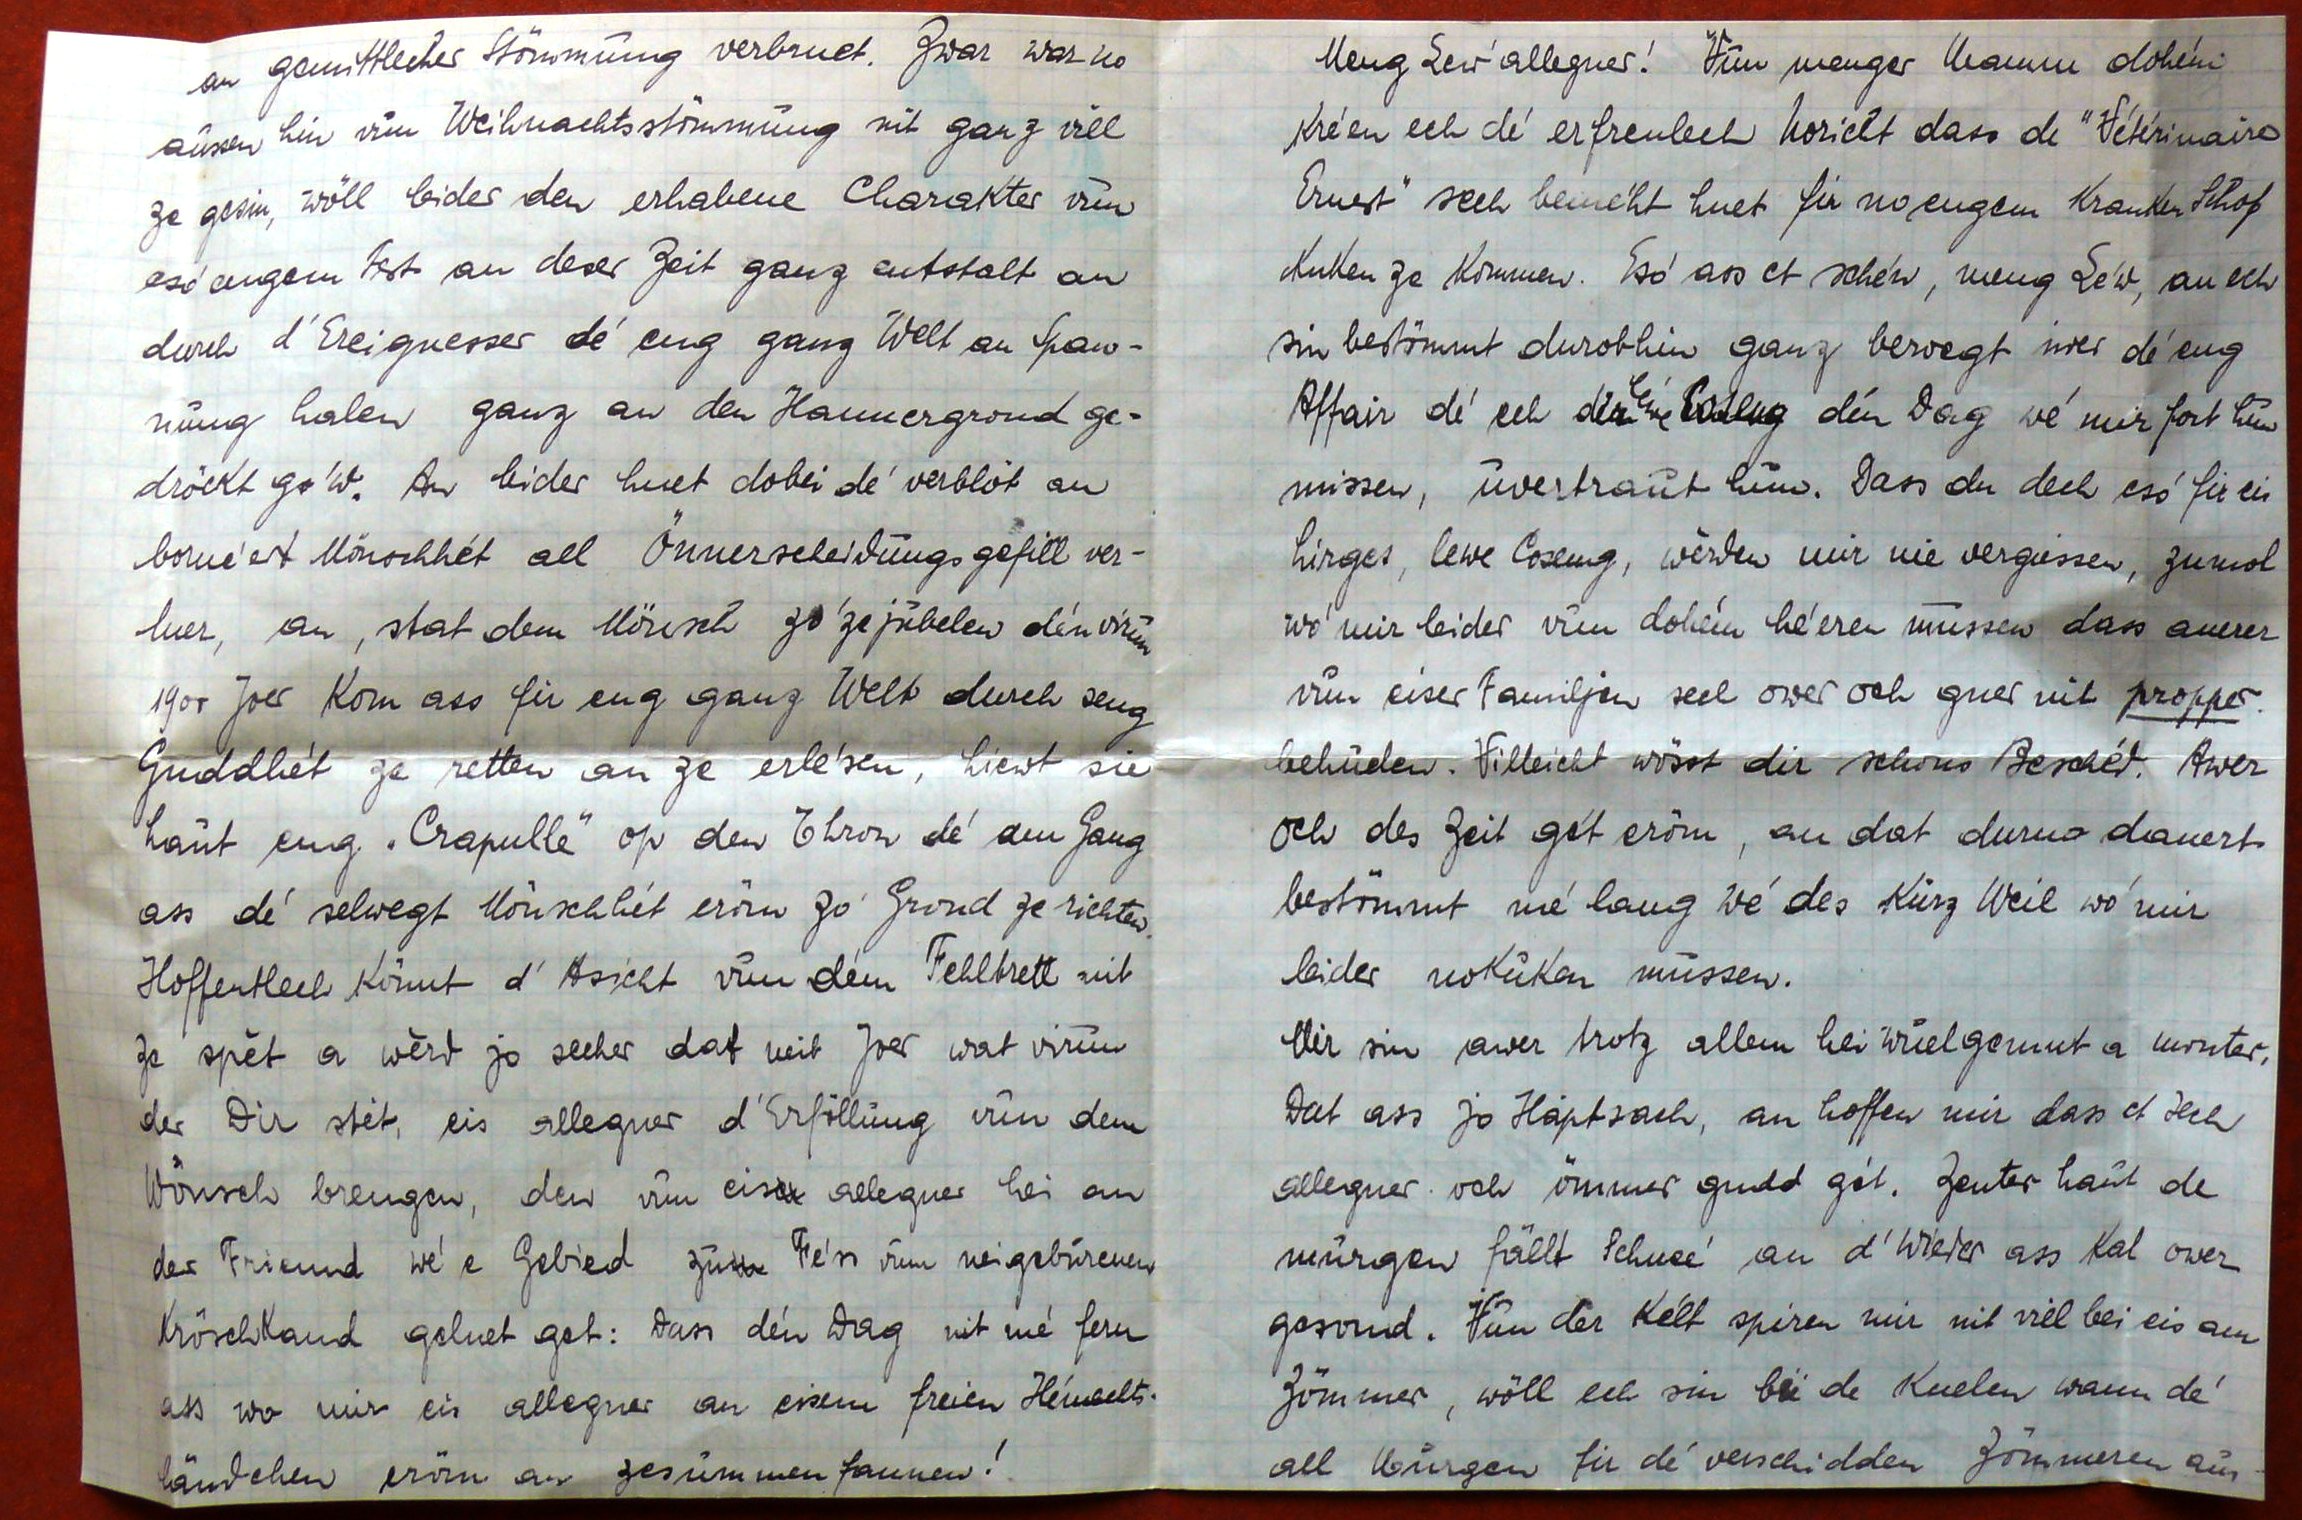 an gemittlecher Stömmung verbruet. Zwar war no
aussen hin vun Weihnachtsstömmung nit ganz vill
ze gesin, wöll leider den erhabene Charakter vun
esó engem Fest an deser Zeit ganz entstalt an
durch d'Ereignesser dé eng ganz Welt an Span-
nung halen ganz an den Hannergrond ge-
dröckt gó'w. An leider huet dobei dé verblöt an
borné'ert Mönschhét all Önnerscheidungsgefill ver-
luer, an, stat dem Mönsch zó'zejubelen dén virun
1900 Joer Kom ass fir eng ganz Welt durch seng
Guddhét ze retten an ze erlé'sen, hiewt sie
haut eng "Crapulle" op den Thron dé am Gang
ass dé selwegt Mönschhét eröm zó Grond ze richten.
Hoffentlech Kömmt d'Asicht vun dém Fehltrett nit
ze spét a wèrd jo secher dat neit Joer wat virun
der Dir stét, eis allegner d'Erföllung vun dem
Wönsch brengen, den vun eis allegner hei an
der Friemd wé e Gebied zum Fé'ss vum neigeburenen
Kröschkand geluet get: Dass dén Dag nit mé fern
ass wo mir eis allegner an eisem freien Hémechts-
ländchen eröm an zesummen fannen!
Meng Lew allegner! Vun menger Mamm dohém
Kré'en ech dé erfreulech Noricht dass de "Vétérinaire
Ernest" sech beméht huet fir no engem Kranken Schof
Kuken ze Kommen. Esó ass et schén, meng Léw, an ech
sin bestömmt durobhin ganz bewegt iwer dé eng
Affair dé ech dir léwe Coseng dén Dag wé mir fort hun
missen, uvertraut hun. Dass du dech esó fir eis
hirges, lewe Coseng, wèrden mir nie vergiessen, zumol
wó mir leider vun dohém hé'eren mussen dass anerer
vun eiser Familjen sech ower och guer nit propper
behuelen. Villeicht wösst dir schons Beschéd. Awer
Och des Zeit gét eröm, an dat durno dauert
bestömmt mé lang wé des Kurz Weil wó mir
leider noKuken mussen.
Mir sin awer trotz allem hei wuelgemut a monter,
Dat ass jo Háptsach, an hoffen mir dass et Iech
allegner och ömmer gudd gét. Zenter haut de
murgen fällt Schneé an d'Wieder ass Kal ower
gesond. Vun der Kélt spiren mir nit viel bei eis am
Zömmer, wöll ech sin bei de Kuelen wann dé
all Murgen fir dé verschidden Zömmeren aus-